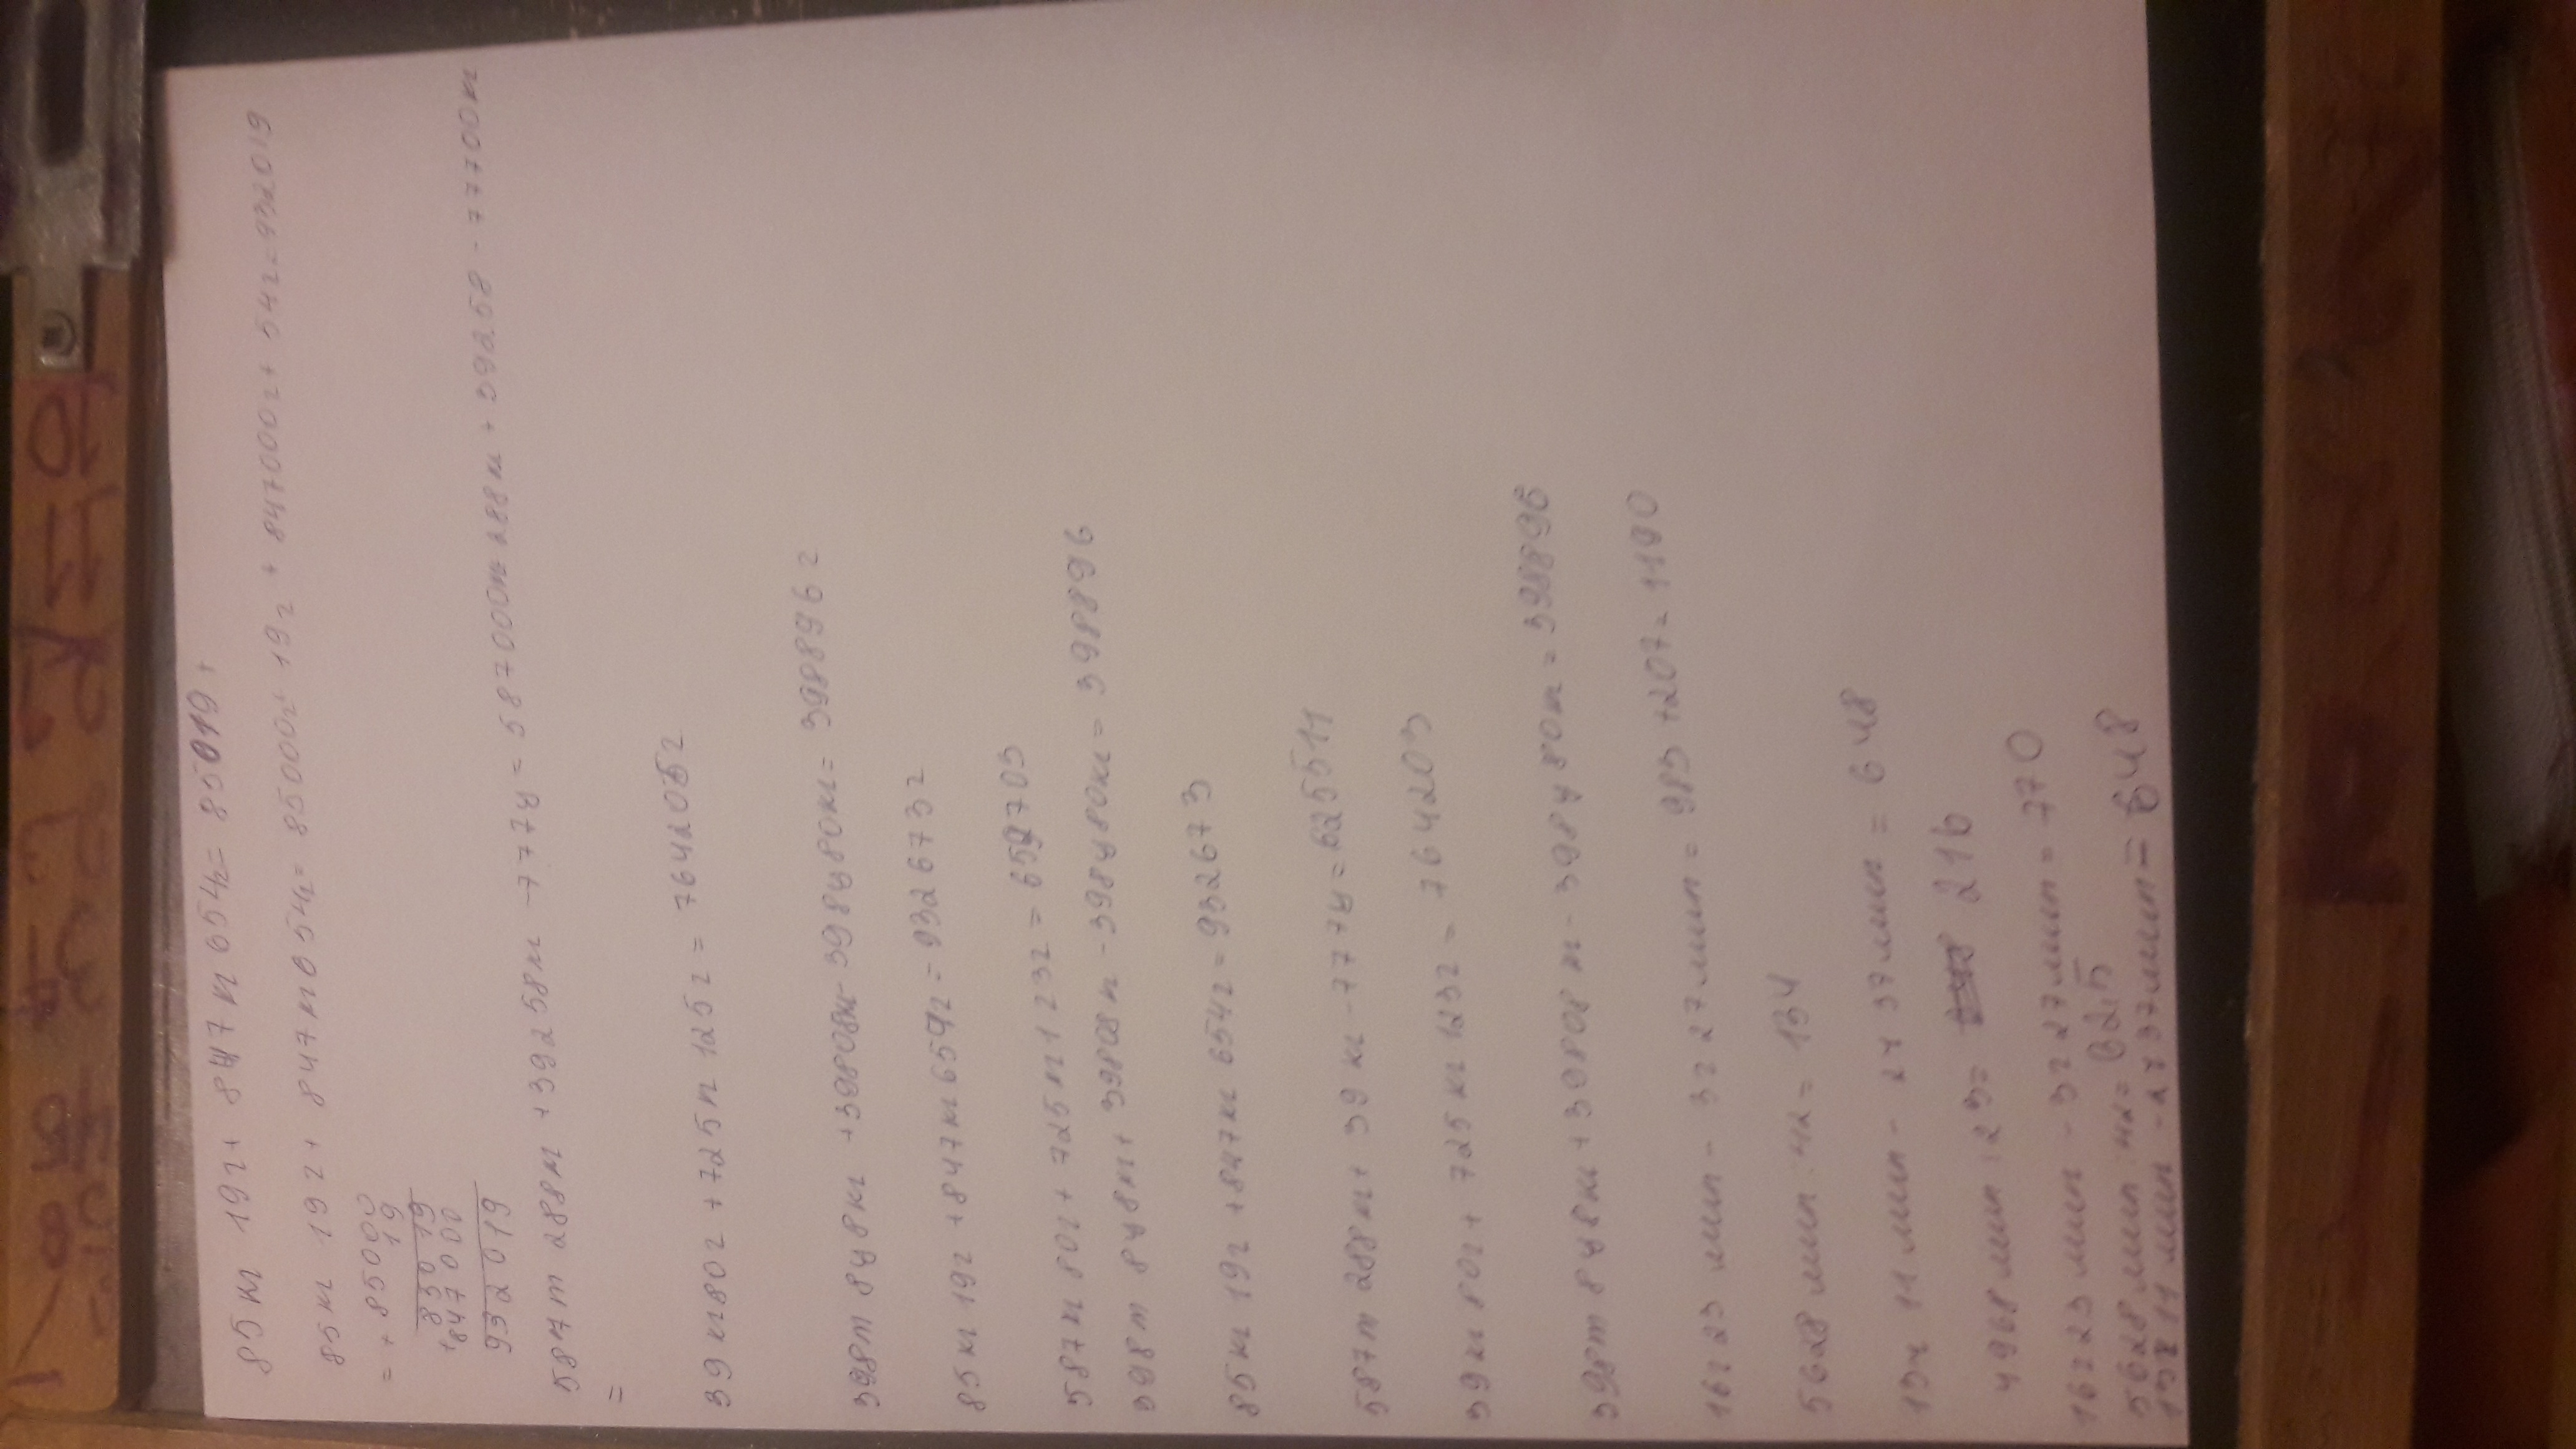 85 кг 19г + 847 кг 654г = 85019 +
85 кг 19г + 847 кг 654г = 85000г + 19г + 847000г + 54г = 932019
= + 85000
19
+ 85019
847000
932019
587т 288кг + 39258кг - 777ц = 587000кг 288кг + 39258 - 77700кг
=
39 кг 80г + 725кг 125г =
398т 8ц 8кг + 39808кг - 398ц 80кг = 398896г
85кг 19г + 847кг 654г = 932673г
398т 8ц 8кг + 39808кг - 398ц 80кг = 398896
85кг 19г + 847кг 654г = 932673
587т 288кг + 39 кг - 777ц = 625511
39кг 80г + 725 кг 123г = 764203
398т 8ц 8кг + 39808 кг - 398ц 80кг = 398896
16ч 23 мин - 3ч 27мин = 983 + 207 = 1190
5628 мин : 42 = 134
13ч 11 мин - 2ч 37мин = 648
4968 мин : 23 = 216
16ч 23 мин - 3ч 27мин = 770
5628 мин : 42 =
13ч 11 мин - 2ч 37мин = 648